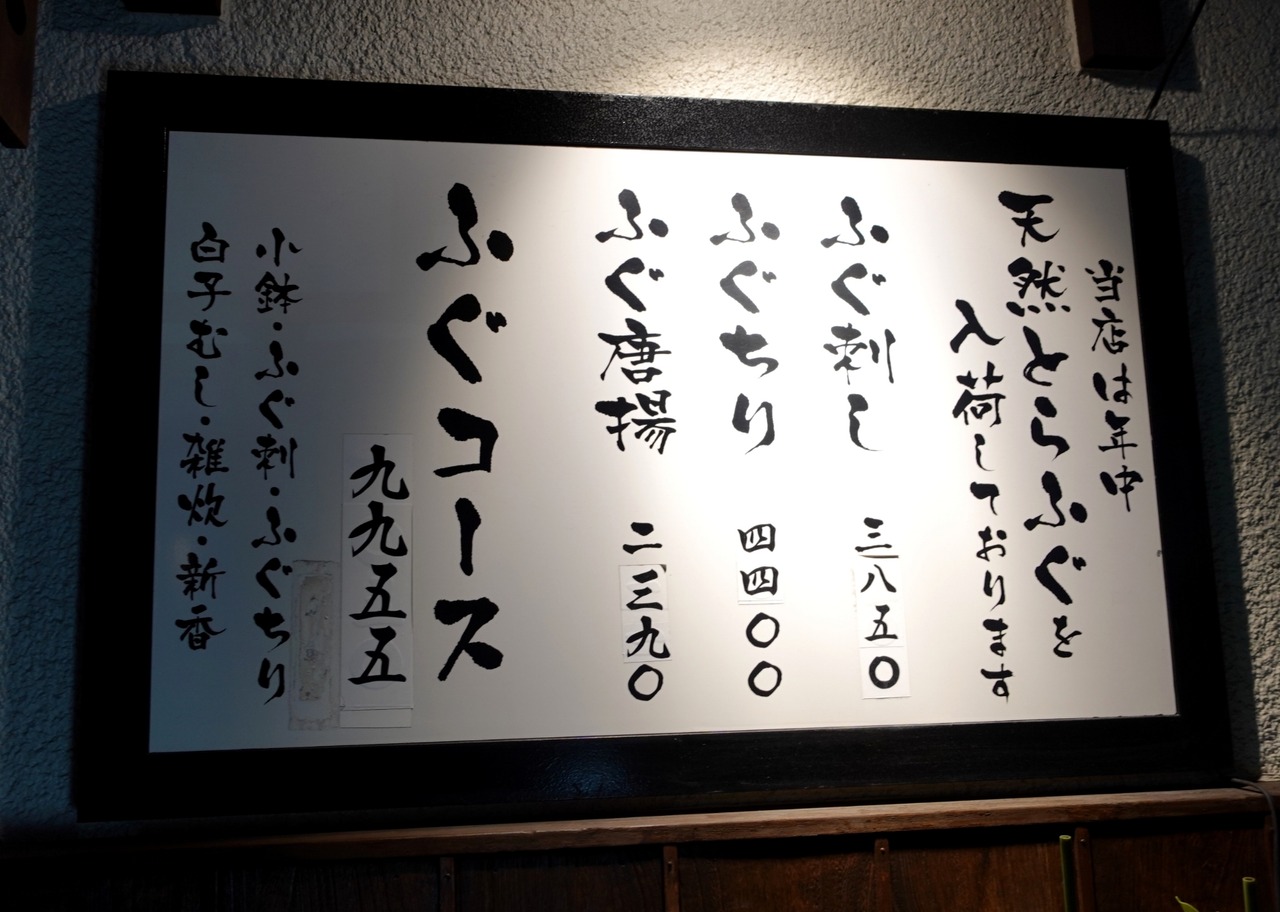 当店は年中
天然とらふぐを
入荷しております
ふぐ刺し 三八五〇
ふぐちり 四四〇〇
ふぐ唐揚 二三九〇
ふぐコース
九九五五
小鉢・ふぐ刺・ふぐちり
白子むし・雑炊・新香